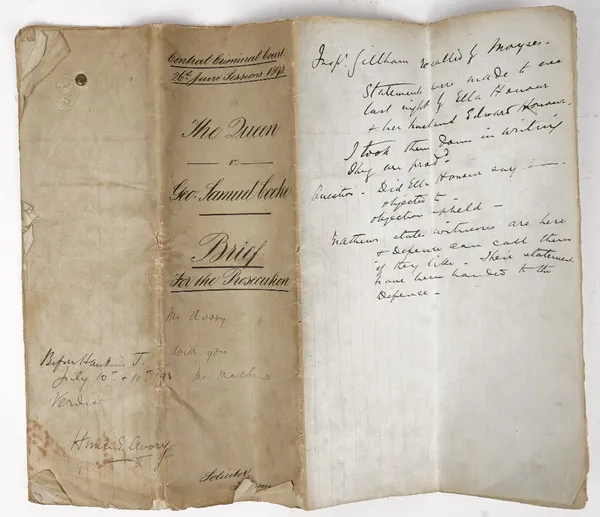 Central Criminal Court
26th June Sessions 1893
The Queen
v.
Geo. Samuel Cooke
Brief
For the Prosecution
Mr Avory
with you
Mr Mathews
Before Hawkins J.
July 10th & 11th /93
Verdict
Horace E Avory
Solicitor
Inspr. Gillham recalled by Moyses.
Statements were made to me
last night by Ella Honour
& her husband Edward Honour.
I took them down in writing
They are prodd.
Question - Did Ella Honour say :—.
objected to -
objection upheld -
Mathews states witnesses are here
& Defence can call them
if they like. Their statements
have been handed to the
Defence -